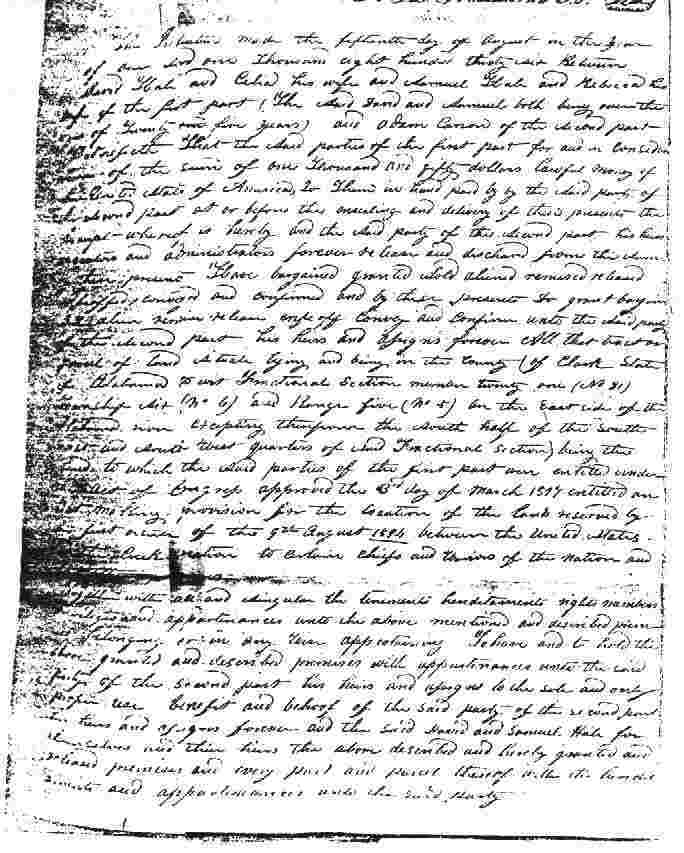 made the fifteenth day of August in the year
of our Lord one Thousand eight hundred thirty six Between
David Hale and Celia his wife and Samuel Hale and Rebecca his
wife of the first part (The said David and Samuel both being over the
age of Twenty five years) and Adam Carson of the second part
That the said parties of the first part for and in consider
of the sum of one Thousand and fifty dollars lawful money of
United States of America, to Them in hand paid by by the said party of
the second part at or before the ensealing and delivery of these presents the
receipt whereof is hereby and the said party of the second part his heirs
executors and administrators forever release and discharg from the same
by these presents Have bargained granted sold aliened remised released
conveyed and confirmed and by these presents Do grant bargain
sell alien remise release convey and confirm unto the said party
of the second part his heirs and assigns forever All that tract or
parcel of land situate lying and being in the County (of Clark State
of Alabama To wit Fractional Section number twenty one (No 21)
township six (No 6) and Range five (No 5) on the East side of the
Alabama river Excepting therefrom the south half of the South
east and South West quarters of said Fractional Section) being the
lands to which the said parties of the first part are entitled under
act of Congress approved the 3rd day of March 1817 entitled an
act making provision for the location of the lands reserved by
first article of the 9th August 1814 between the United States
Creek nation to certain chiefs and warriors of the nation and
with all and singular the tenements hereditaments rights members
and appurtenances unto the above mentioned and described prem
belonging or in any wise appertaining To have and to hold the
above granted and described premises with appurtenances unto the said
party of the second part his heirs and assigns to the sole and only
proper use benefit and behoof of the said party of the second part
his heirs and assigns forever and the said David and Samuel Hale for
themselves and their heirs the above described and hereby granted and
released premises and every part and parcel thereof with the
and appurtenances unto the said party